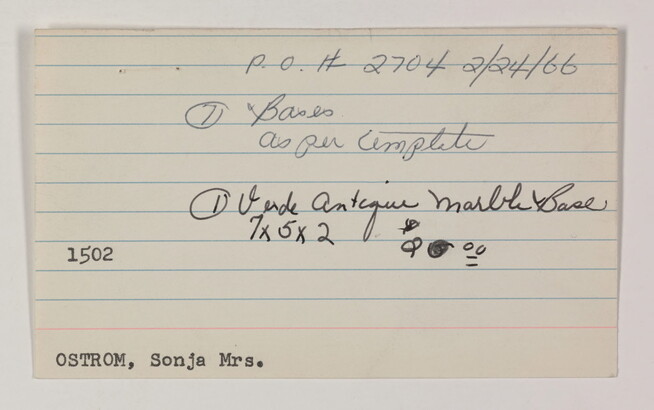 P.O. # 2704 2/24/66
① Bases
as per templete
① Verde Antique Marble Base
7x5x2
00
1502
OSTROM, Sonja Mrs.